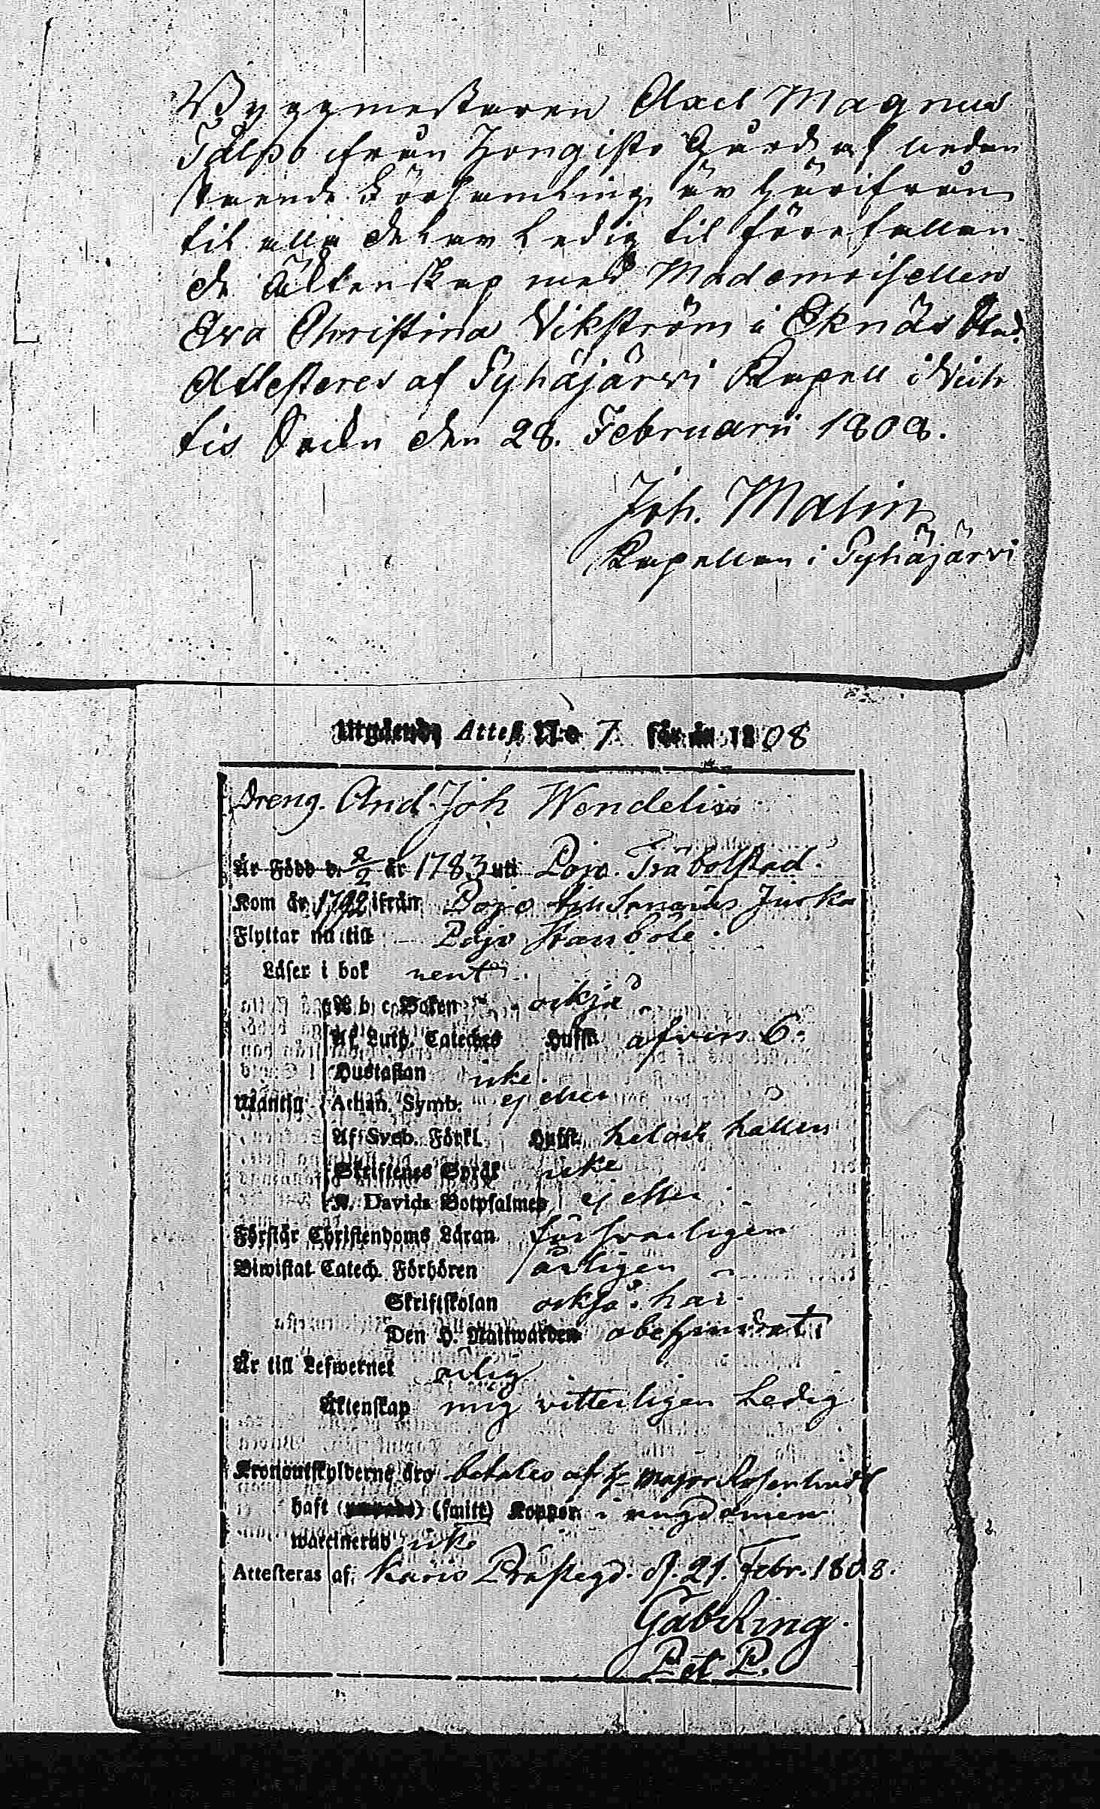 Byggmestaren Axel Magnus
Tålpo ifrån Hongisto Gård af nedan
stående Församling är härifrån
til alla delar Ledig til förefallan
de Äktenskap med Mademoisellen
Eva Christina Vikström i Eknäs Stad.
Attesteres af Pyhäjärvi Kapell i Vich
tis Sokn den 28. Februarii 1808.
Joh. Malin
Kapellan i Pyhäjärvi
Utgående Attest N:o 7 för år 1808
Dreng. And. Joh Wendelin
Är Född d. 2/2 år 1783 uti Pojo Träbolstad.
Kom år 1792 ifrån Pojo till
Flyttar nu till Pojo
Läser i bok rent
A b c Boken också
Af Luth. Cateches Hufst.
Hustaflan icke
Mäntig Athan. Symb. ej eller
Af Sveb. Förkl. Hufst. hel och hållen
Skriftenes Språk icke
K. Davids Botpsalmer ej eller
Förstår Christendoms Läran försvarligen
Biwistat Catech. Förhören årligen
Skriftskolan också här
Den H. Nattwarden obehindrat
Är till Lefwernet ärlig
Äktenskap mig vitterligen Ledig
Kronoutskylderne äro betalas af Hr Major Rosenlindt
haft (smitt) Koppor i ungdomen
waccinerad icke
Attesteras af: Karis Prästegd. d. 21. Febr. 1808.
Gab. Ring.
P. et P.